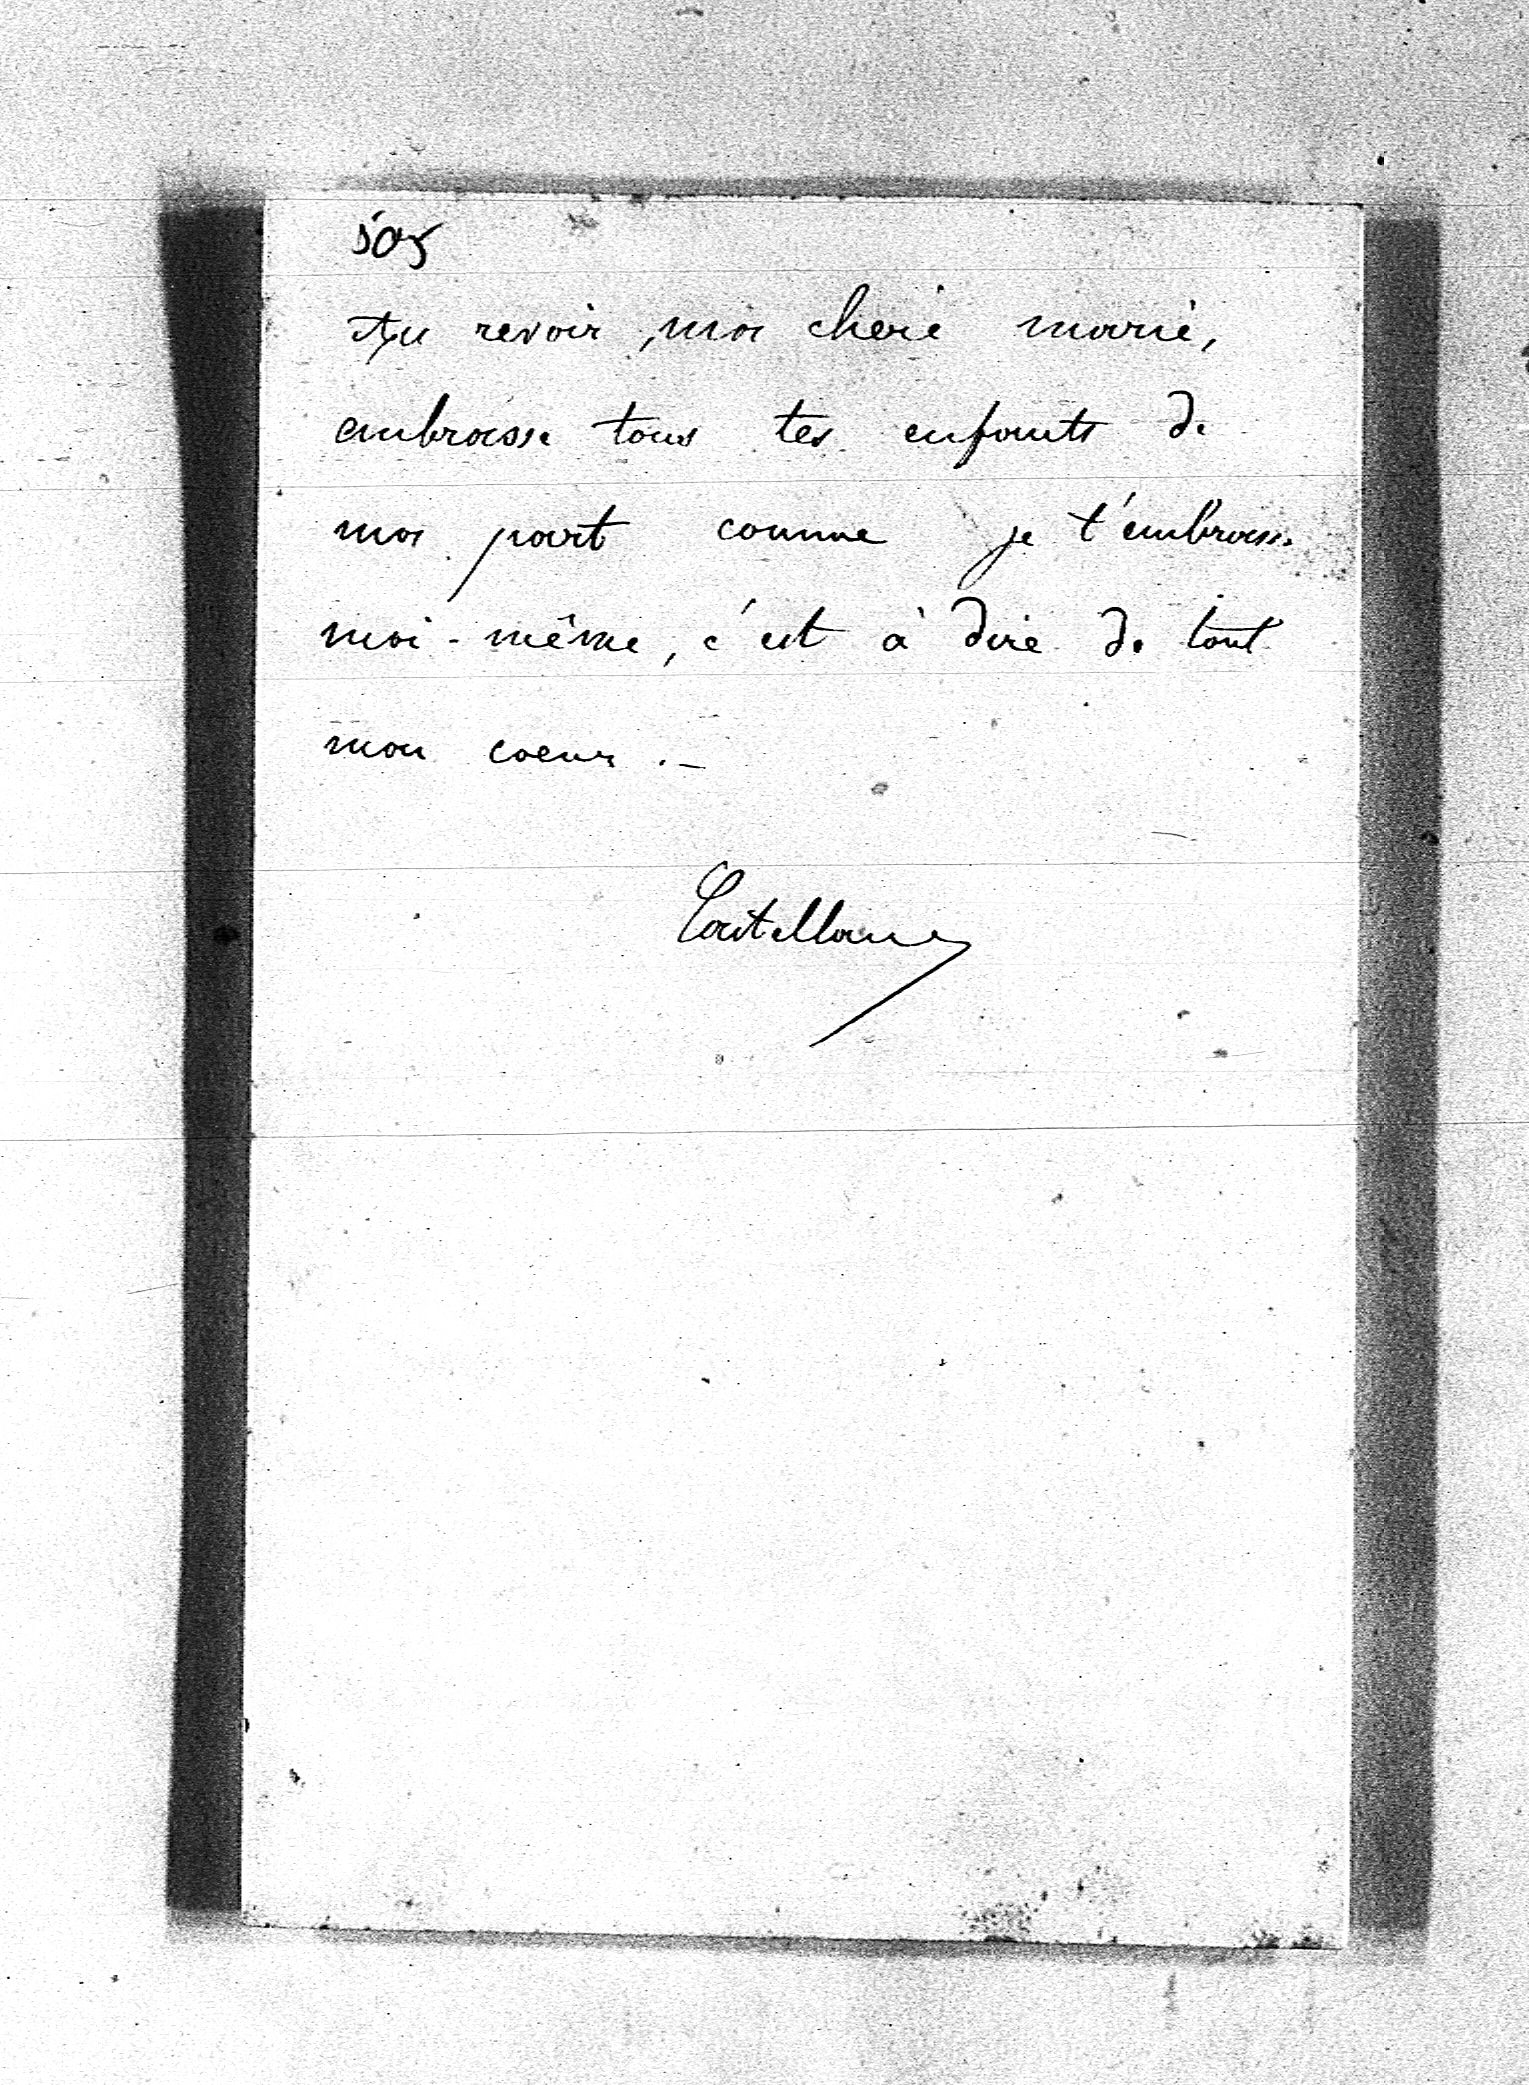 505
Au revoir, ma chère marie,
embrasse tous tes enfants de
ma part comme je t'embrasse
moi-même, c'est à dire de tout
mon coeur.-
Castellane